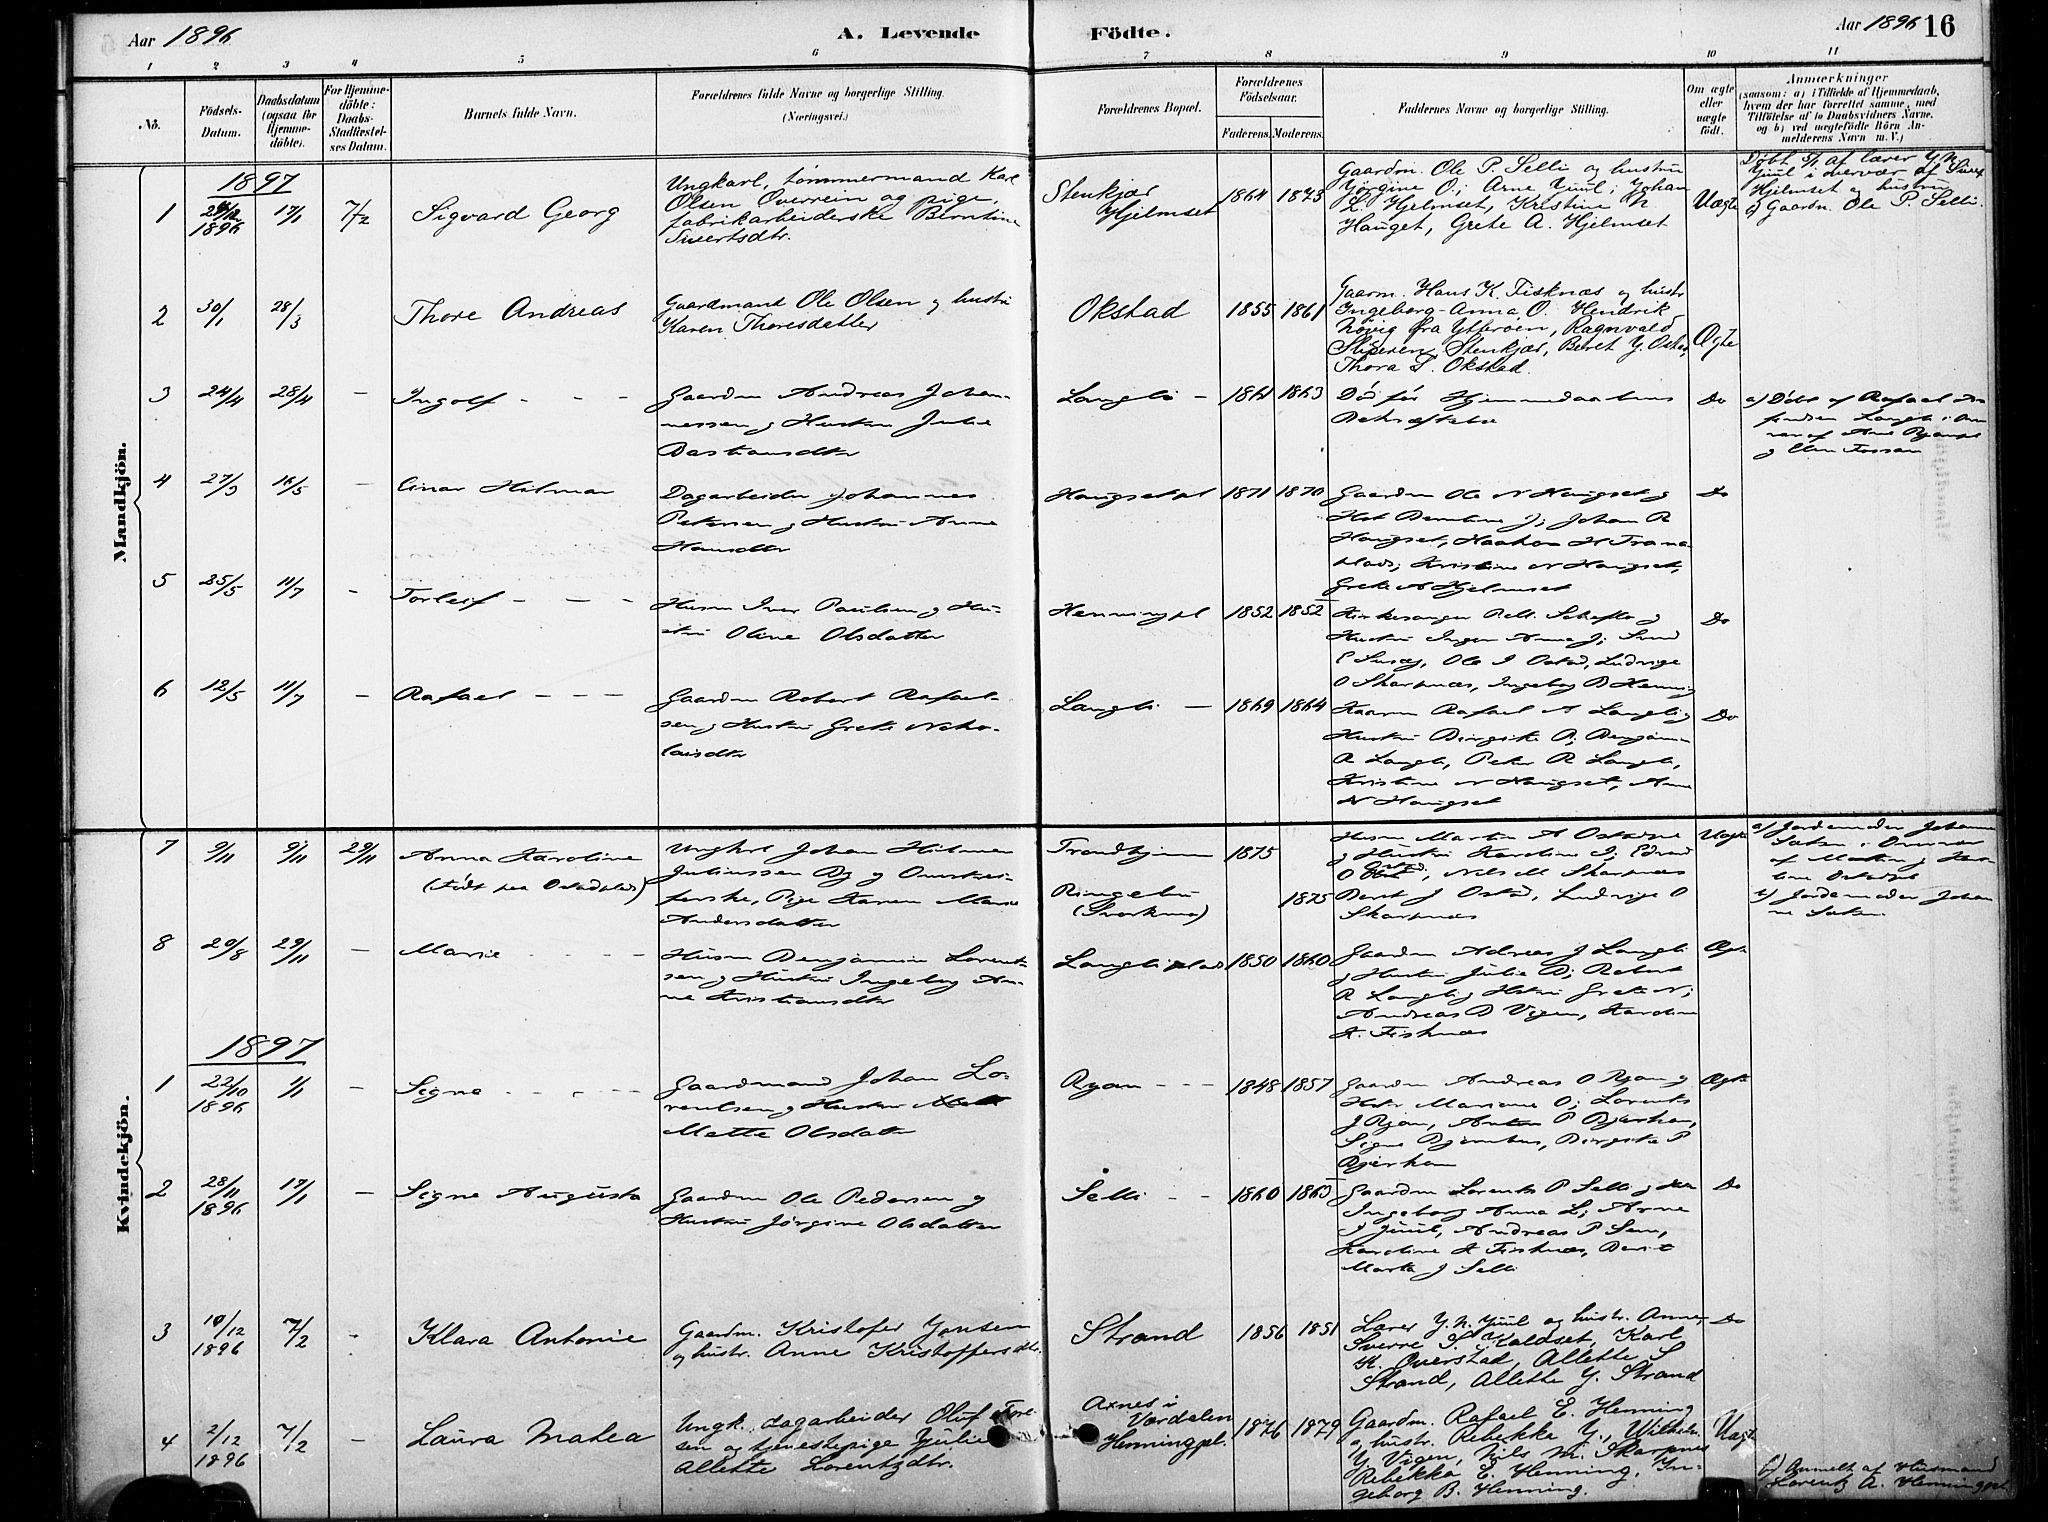 Aar 1896
A. Levende
Födte.
Aar 1896 16
1 2 3 4 5 6 7 8 9 10 11
No.
Födsels-
Datum.
Daabsdatum
(ogsaa for
Hjemme-
döbte).
For Hjemme-
döbte:
Daabs-
Stadfæstel-
ses Datum.
Barnets fulde Navn.
Forældrenes fulde Navne og borgerlige Stilling.
(Næringsvei.)
Forældrenes Bopæl.
Forældrenes
Födselsaar.
Faderens. Moderens.
Faddernes Navne og borgerlige Stilling.
Om ægte
eller
uægte
födt.
Anmærkninger
(saasom: a) i Tilfælde af Hjemmedaab,
hvem der har forrettet samme, med
Tilföielse af to Daabsvidners Navne.
og b) ved uægtefödte Börn An-
melderens Navn m. V.)
Mandkjön.
1897
1 1896 17/1 7/2 Sigvard Georg
Ungkarl, tømmermand Karl
Olsen Overrein og pige,
fabrikarbeiderske Berntine
Sivertsdtr.
Stenkjær
Hjelmset
1864 1873
Gaardm. Ole P. Selli og hustru
Jørgine O.; Arne Juul; Johan
L. Hjelmset, Kristine N.
Hauget, Grete A. Hjelmset
Uægte
Døbt af lærer J. N.
Juul i overvær af Sivert
Hjelmset og hustru
b) Gaardm. Ole P. Selli.
2 30/1 28/3 Thore Andreas
Gaardmand Ole Olsen og hustru
Karen Thoresdatter
Okstad
1855 1861
Gaardm. Hans K. Fisknæs og hustr.
Ingeborg-Anna O. Hendrik
Høvig fra Ytterøen, Ragnvald
Stenkjær, Beret J.
Thora S. Okstad.
Ægte
3 24/4 28/4 — Ingolf - - -
Gaardm Andreas Johan-
nessen og Hustru Julie
Bastiansdtr
Langli —
1861 1863
Død før Hjemmedaabens
Bekræftelse
Do
a) Døbt af Rafael
Langli
og Elen Fossan
4 27/3 16/5 — Einar Hilmar
Dagarbeider Johannes
Petersen og Hustru Anna
Hansdtr
Haugsetpl
1871 1870
Gaardm Ole N Haugset og
Hst Berntine J; Johan R
Haugset, Haakon H Trana-
plads; Kristine N Haugset,
Grete A Hjelmset
Do
5 25/5 11/7 - Torleif - - -
Husm Iver Paulsen og Hu-
stru Oline Olsdatter
Henningpl
1852 1852
Kirkesanger
Hustru Inger Anna J;
Ole J Ostad, Ludvige
O Skarpnæs, Ingeborg B Henning
Do
6 12/5 11/7 — Rafael - - -
Gaardm Robert Rafael-
sen og Hustru Grete Niko-
laisdtr
Langli —
1869 1864
Kaarm Rafael A Langli og
Hustru Birgitte P; Benjamin
R Langli, Peter R Langli,
Kristine N Haugset, Anne
N Haugset
Do
Kvindekjön.
7 9/11 9/11 29/11 Anna Karoline
(Født paa Ostadplads)
Ungkrl Johan Hilmer
Juliussen By og
Pige Karen Marie
Andersdatter
Trondhjem
Ringebu
1875
1875
Husm Martin A
og Hustru Karoline J;
Nils M Skarpnæs
Beret J Ostad, Ludvige O
Skarpnæs
Uægte
a) Jordemoder Johanne
af Martin og
b) Jordemoder Johan-
ne
8 20/8 29/11 — Marie - - - -
Husm Benjamin Lorent-
sen og Hustru Ingeborg An-
ne Kristiansdtr
Langliplads
1850 1860
Gaardm Adreas J Langli
og Hustru Julie B; Robert
R Langli og Hstru Grete N;
Andreas B Vigen, Karoline
K. Fisknæs
Ægte
1897
1 22/10 1896 1/1 - Signe - - - -
Gaardmand Johan Lo-
rentsen og Hustru
Mette Olsdatter
Ryan - - -
1848 1857
Gaardm Andreas O Ryan og
Hstr Mariane O; Lorents
J Ryan, Anton P Bjerkem,
Signe Birgitte P
Bjerkem
Ægte
2 28/11 1896 17/1 — Signe Augusta
Gaardm Ole Pedersen og
Hustru Jørgine Olsdatter
Selli - -
1860 1863
Gaardm Lorents P Selli og
Ingeborg Anna L; Arne
J Juul, Andreas P Sem,
Karoline K Fisknæs, Beret
Marta J Selli
Do
3 10/12 1896 7/2 - Klara Antonie
Gaardm. Kristofer Jonsen
og hustr. Anne Kristoffersdtr.
Strand
1856 1851
Lærer J. N. Juul og hustr. Anne,
Sverre S. Kaldset, Karl
K. Overstad, Allette S
Strand, Allette J. Strand
Do
4 2/12 1896 7/2 — Laura Matea
Ungk. dagarbeider Oluf
sen og tjenestepige Julie
Allette Lorentzdtr.
Axnes i
Værdalen
Henningpl.
1876 1879
Gaardm. Rafael E. Henning
og hustr. Rebekka J., Wilhelm
J. Vigen, Nils M. Skarpnes
Rebekka E. Henning, In-
geborg B. Henning.
Uægte
b) Anmeldt af Husmand
Lorentz A. Henningpl.